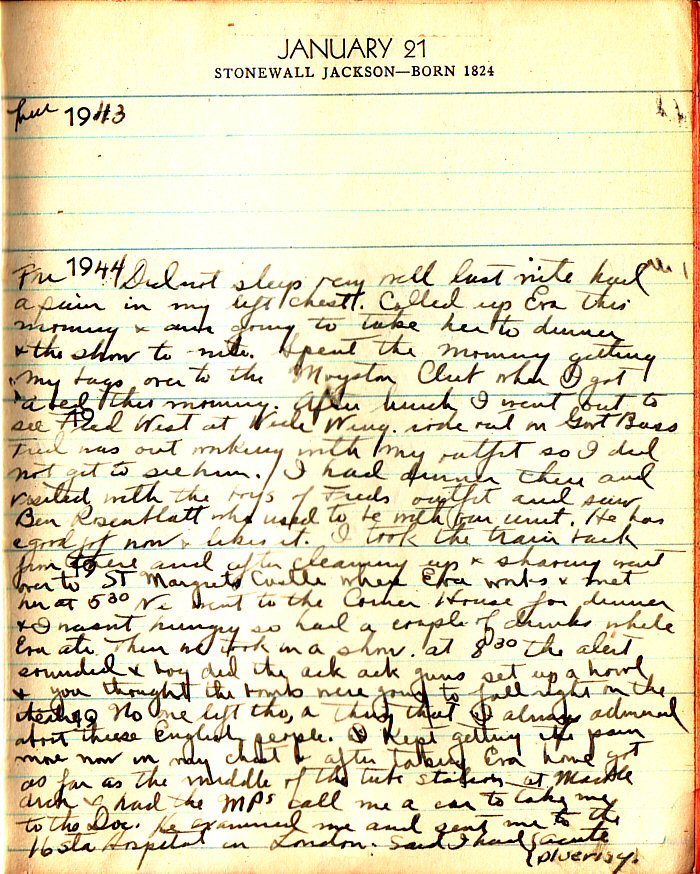 JANUARY 21
STONEWALL JACKSON—BORN 1824
1943
Fri 1944 Did not sleep very well last nite had
a pain in my left chest. Called up Eva this
morning & am going to take her to dinner
& the show to-nite. Spent the morning getting
my bags over to the Moyston Club where I got
a bed this morning. After lunch I went out to
see Fred West at Wide Wing. rode out on Govt Buss
Fred was out working with my outfit so I did
not get to see him. I had dinner there and
visited with the boys of Freds outfit and saw
Ben Rosenblatt who used to be with our unit. He has
a good job now & likes it. I took the train back
from there and after cleaning up & shaving went
over to St Margrets Castle where Eva works & met
her at 5 30 We went to the Corner House for dinner
& I wasn't hungry so had a couple of drinks while
Eva ate. Then we took in a show. at 8 30 the alert
sounded & boy did the ack ack guns set up a howl
& you thought the bombs were going to fall right on the
No one left tho, a thing that I always admired
about these English people. I kept getting the pain
more now in my chest & after taking Eva home got
as far as the middle of the tube station at Marble
Arch & had the MPs call me a car to take me
to the Doc. He examined me and sent me to the
16 Sta Hospital in London. Said I had acute
pluerisy.
19
19
19